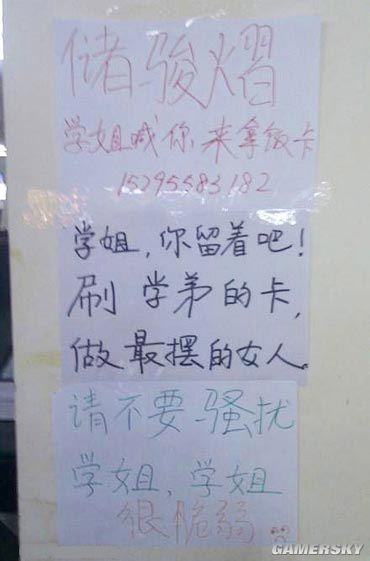 储骏熠
学姐喊你来拿饭卡
15295583182
学姐，你留着吧！
刷学弟的卡，
做最摆的女人。
请不要骚扰
学姐，学姐
很脆弱
GAMERSKY